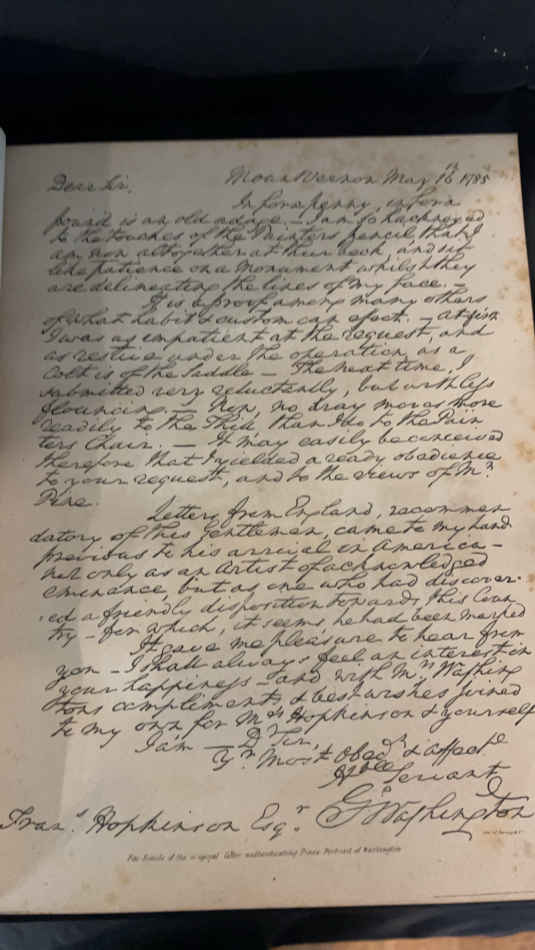 Mount Vernon May 16th 1785
Dear Sir,
In for a penny, in for a
pound is an old adage. — I am so hackneyed
to the touches of the Painters pencil, that I
am now altogether at their beck, and sit
like patience on a Monument whilst they
are delineating the lines of my face. —
It is a proof among many others
of what habit & custom can effect. — At first
I was as impatient at the request, and
as restive under the operation, as a
Colt is of the Saddle — The next time, I
submitted very reluctantly, but with less
flouncing. — Now, no dray moves more
readily to the Thill, than I do to the Pain
ters Chair. — It may easily be conceived
therefore that I yielded a ready obedience
to your request, and to the views of Mr.
Pine.
Letters from England, recommen
datory of this Gentleman, came to my hand
previous to his arrival in America —
not only as an Artist of acknowledged
eminence, but as one who had discover-
ed a friendly disposition towards this Coun
try — for which, it seems, he had been marked
It gave me pleasure to hear from
you — I shall always feel an interest in
your happiness — and with Mrs Washing
tons compliments, & best wishes joined
to my own for Mrs Hopkinson & yourself
I am — Dr Sir,
Yr. Most Obedt & affecte
Hble Servant
Go Washington
Frans. Hopkinson Esqr.
Fac Simile of the original letter authenticating Pines Portrait of Washington